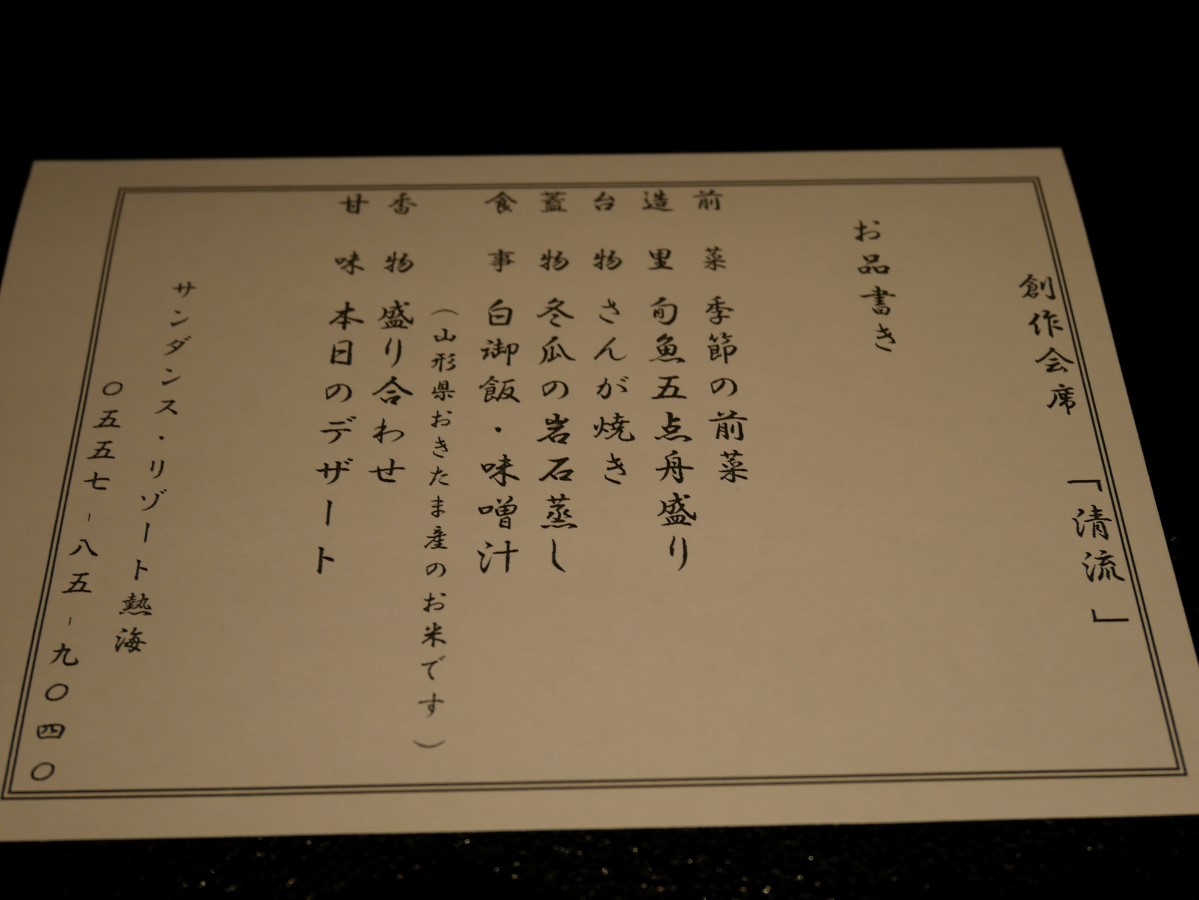 創作会席 「清流」
お品書き
前菜 季節の前菜
造里 旬魚五点舟盛り
台物 さんが焼き
蓋物 冬瓜の岩石蒸し
食事 白御飯・味噌汁
（山形県おきたま産のお米です）
香物 盛り合わせ
甘味 本日のデザート
サンダンス・リゾート熱海
〇五五七-八五-九〇四〇